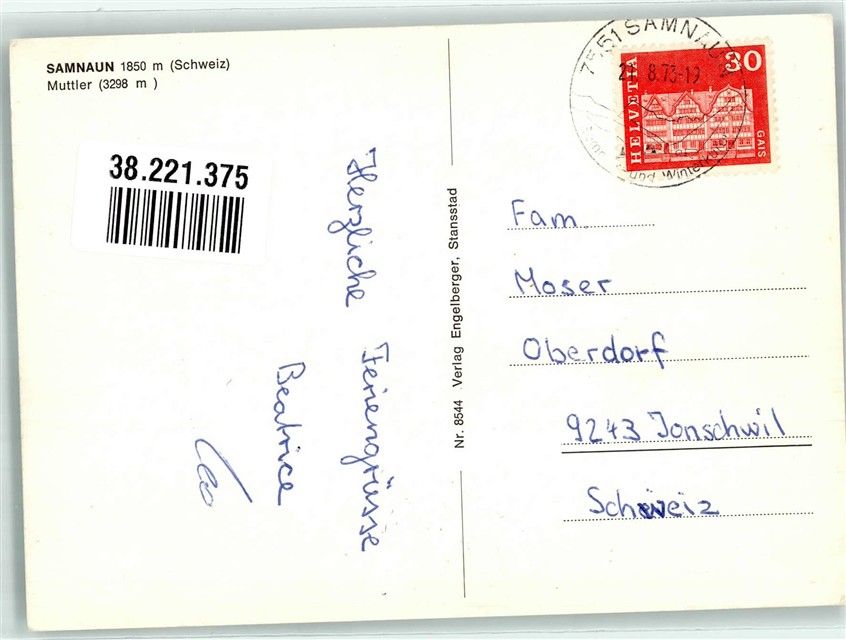 SAMNAUN 1850 m (Schweiz)
Muttler (3298 m )
38.221.375
Herzliche Feriengrüsse
Beatrice
Leo
Nr. 8544 Verlag Engelberger, Stansstad
7551 SAMNAUN
8.73-19
und Winter
HELVETIA
30
GAIS
Fam.
Moser
Oberdorf
9243 Jonschwil
Schweiz